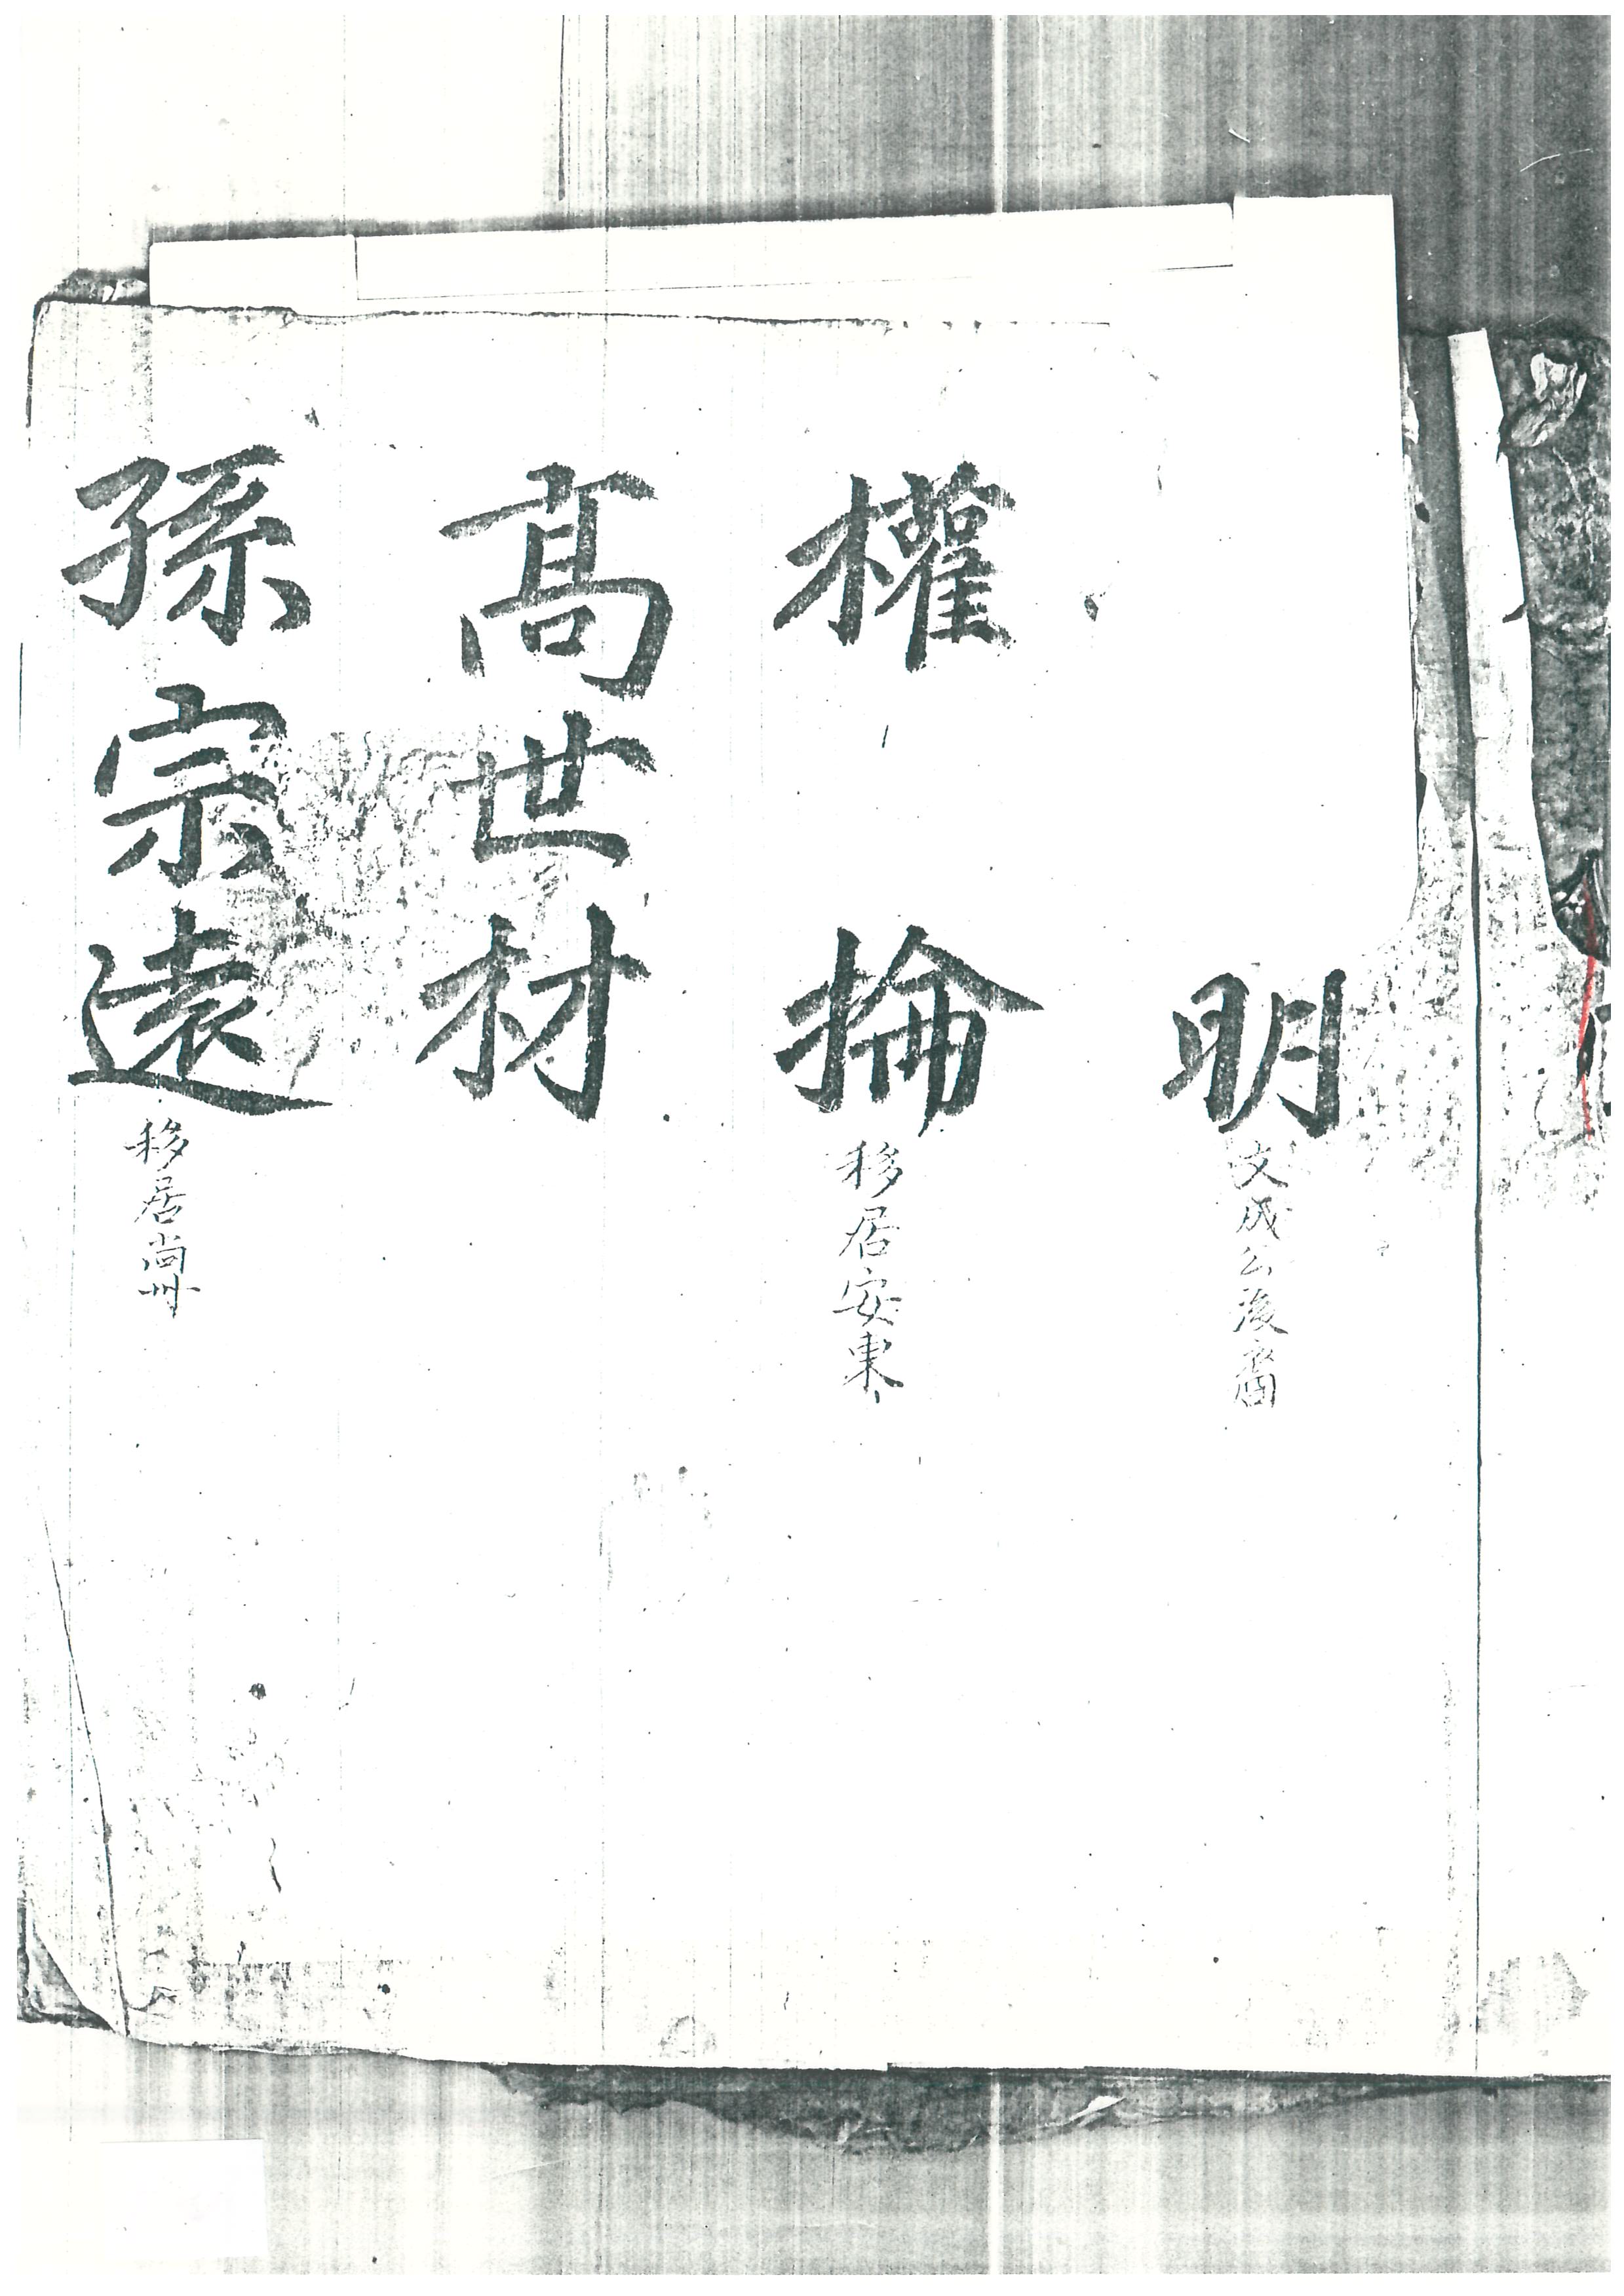 明 文成公後裔
權 掄 移居安東
高世材
孫宗遠 移居尙州